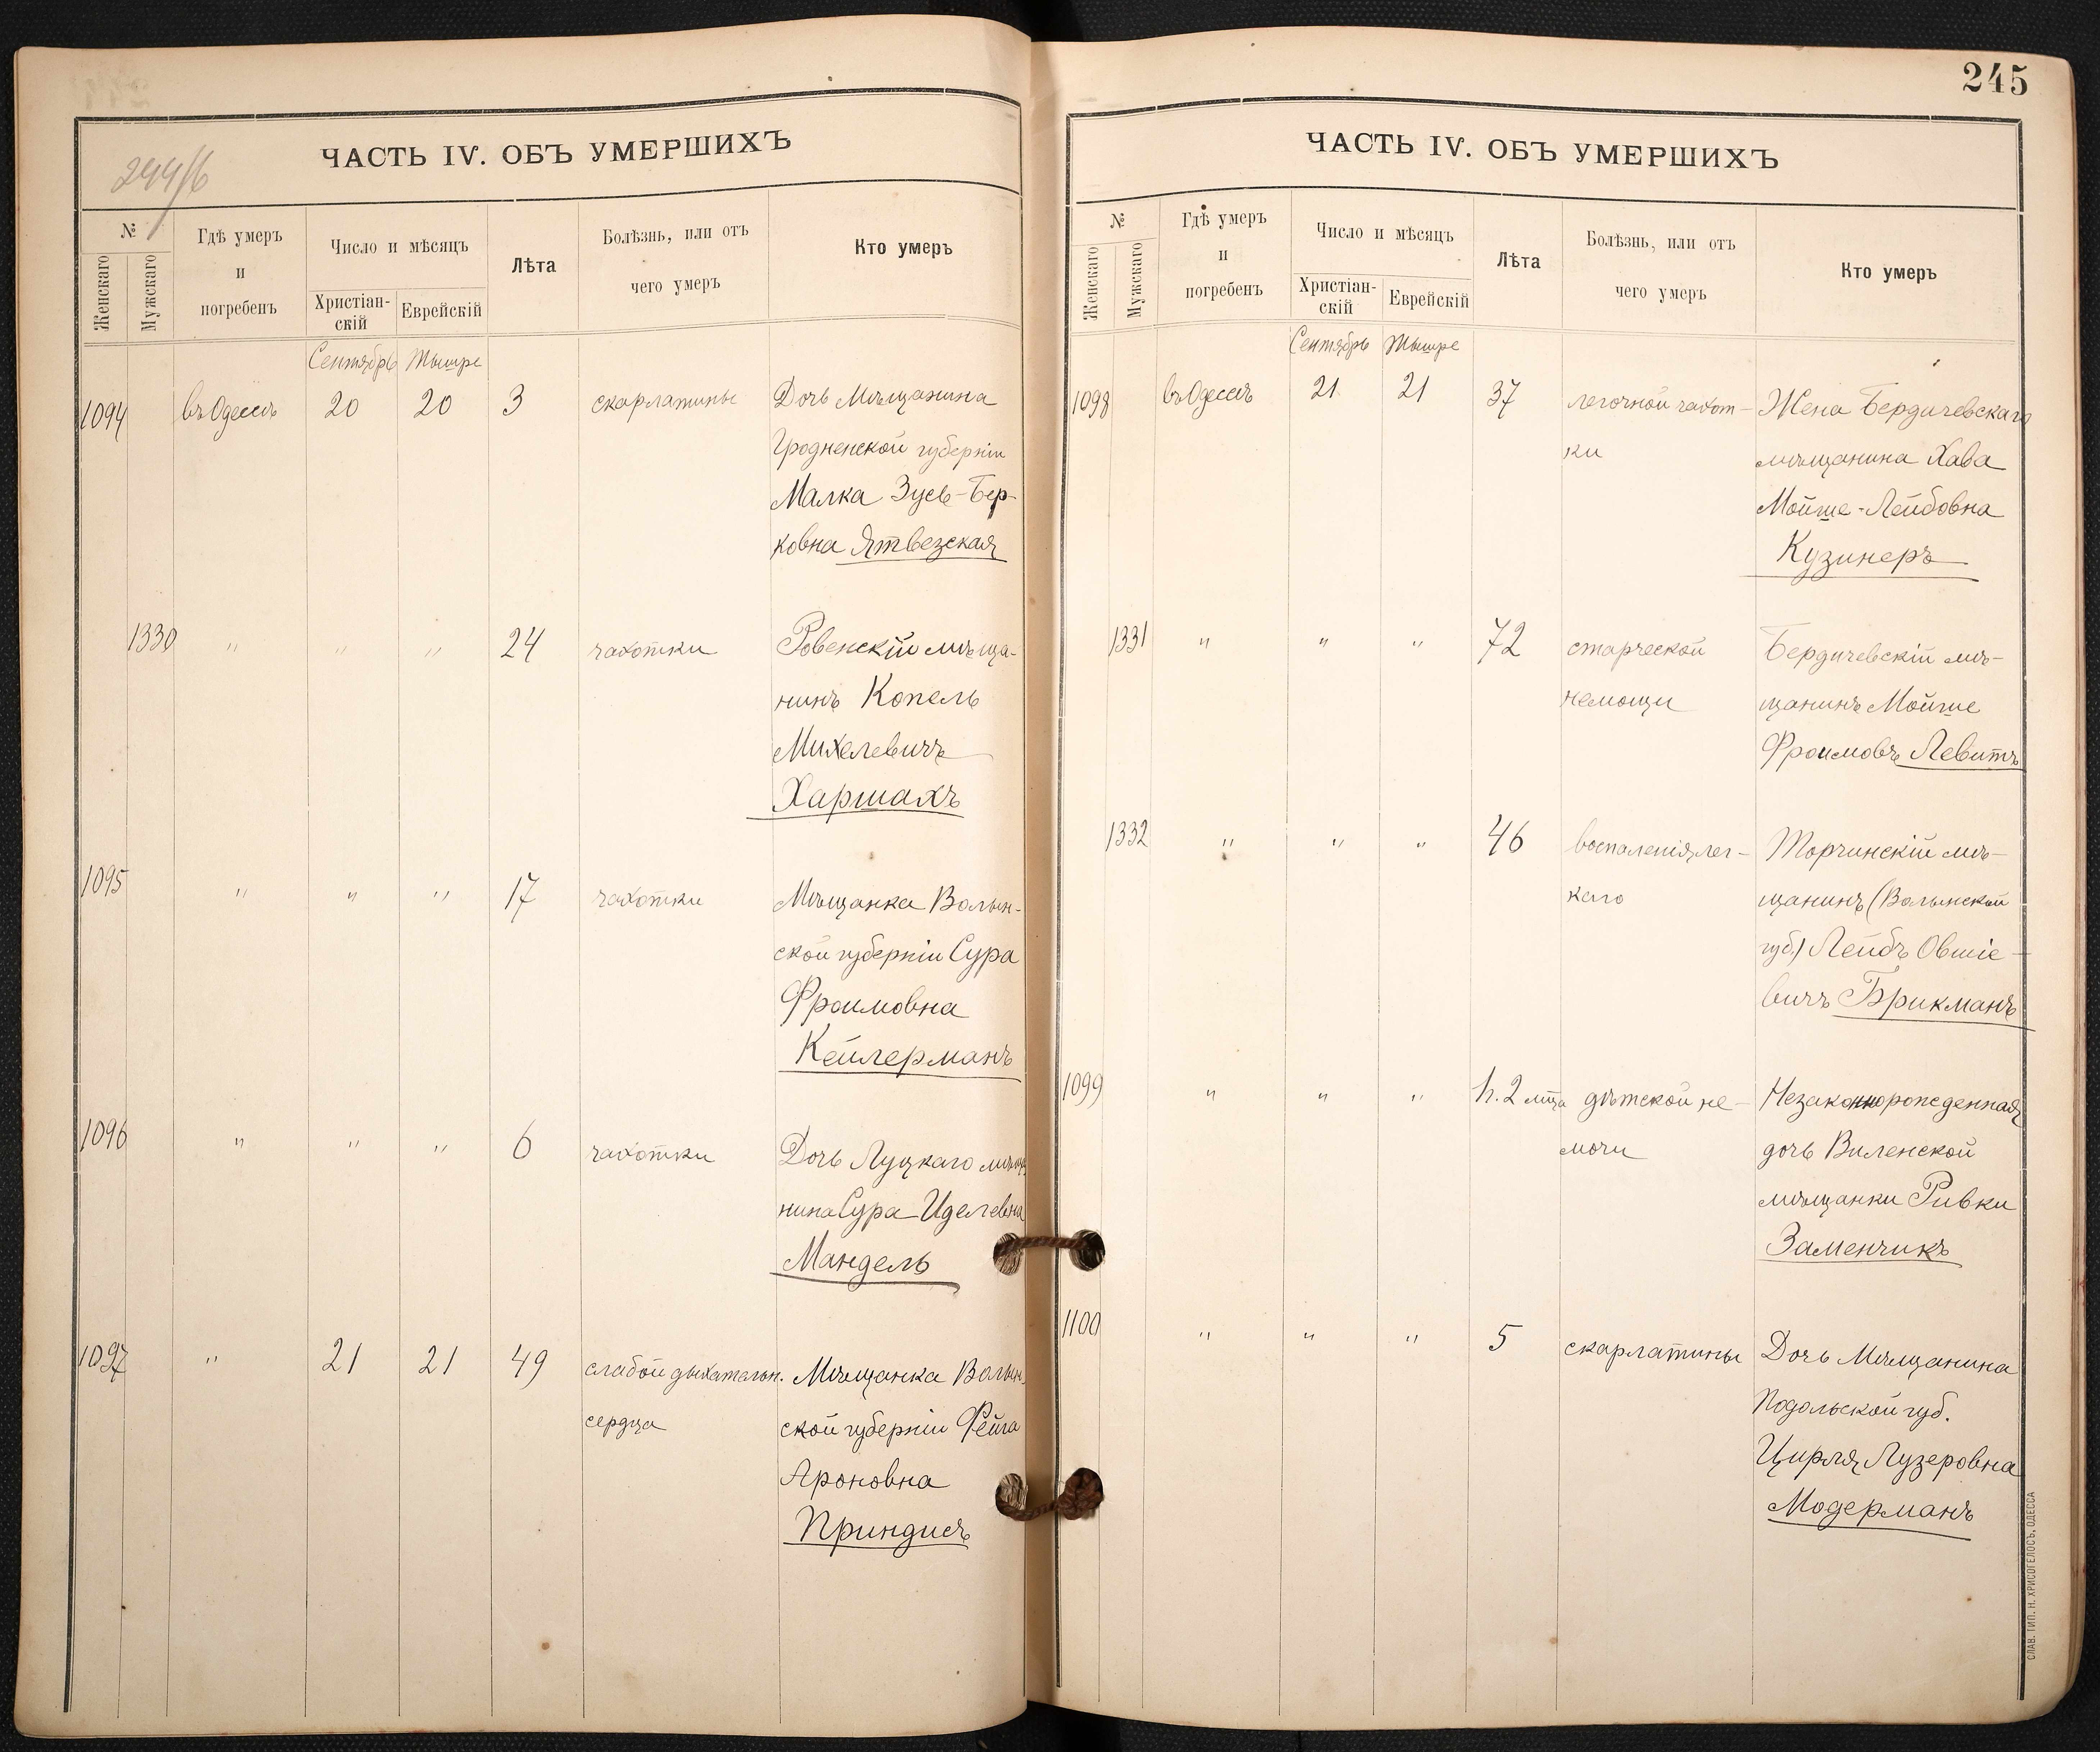 244/б
ЧАСТЬ IV. ОБЪ УМЕРШИХЪ
№
Женскаго
Мужскаго
Гдѣ умеръ
и
погребенъ
Число и мѣсяцъ
Христіан-
скій
Еврейскій
Лѣта
Болѣзнь, или отъ
чего умеръ
Кто умеръ
Сентябрь Тышре
1094 въ Одессѣ 20 20 3 скарлатины Дочь Мѣщанина
Гродненской губерніи
Малка Зусь-Бер-
ковна Ятвезская
1330 " " " 24 чахотки Ровенскій мѣща-
нинъ Копель
Михелевичъ
Харшахъ
1095 " " " 17 чахотки Мѣщанка Волын-
ской губерніи Сура
Фроимовна
Кейлерманъ
1096 " " " 6 чахотки Дочь Луцкаго мѣща
нина Сура-Иделевна
Мандель
1097 " 21 21 49 слабой дыхательн. Мѣщанка Волын-
сердца ской губерніи Фейга
Ароновна
Приндисъ
245
ЧАСТЬ IV. ОБЪ УМЕРШИХЪ
№
Женскаго
Мужскаго
Гдѣ умеръ
и
погребенъ
Число и мѣсяцъ
Христіан-
скій
Еврейскій
Лѣта
Болѣзнь, или отъ
чего умеръ
Кто умеръ
Сентябрь Тышре
1098 въ Одессѣ 21 21 37 легочной чахот- Жена Бердичевскаго
ки мѣщанина Хава
Мойше-Лейбовна
Кузинеръ
1331 " " " 72 старческой Бердичевскій мѣ-
немощи щанинъ Мойше
Фроимовъ Левитъ
1332 " " " 46 воспаленія лег- Торчинскій мѣ-
каго щанинъ (Волынской
губ.) Лейбъ Овшіе-
вичъ Брикманъ
1099 " " " 2 мца дѣтской не- Незаконнорожденная
мочи дочь Виленской
мѣщанки Ривки
Заменчикъ
1100 " " " 5 скарлатины Дочь Мѣщанина
Подольской губ.
Цирля Лузеровна
Модерманъ
СЛАВ. ТИП. Н. ХРИСОГЕЛОСЪ, ОДЕССА